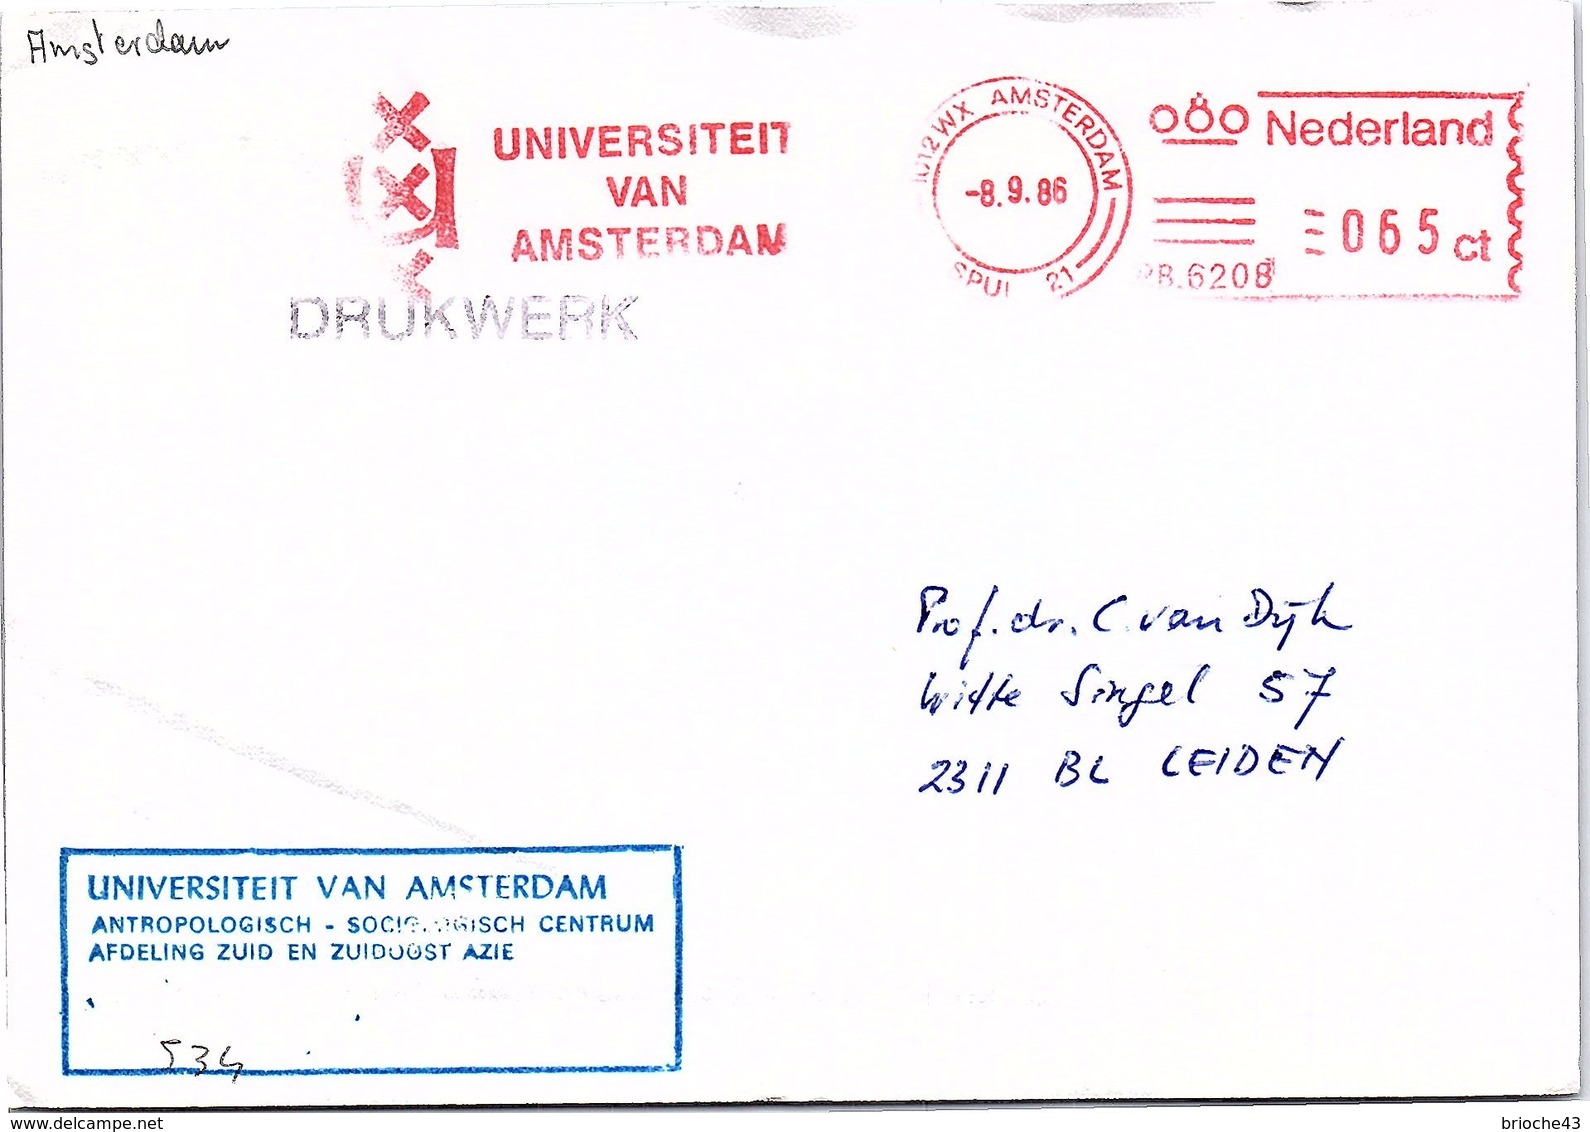 Amsterdam
UNIVERSITEIT
VAN
AMSTERDAM
DRUKWERK
1012 WX AMSTERDAM
-8.9.86
SPUI 21
Nederland
065 ct
PB.6208
Prof. dr. C. van Dijk
Witte Singel 57
2311 BL LEIDEN
UNIVERSITEIT VAN AMSTERDAM
ANTROPOLOGISCH - SOCIOLOGISCH CENTRUM
AFDELING ZUID EN ZUIDOOST AZIE
534
www.delcampe.net
brioche43